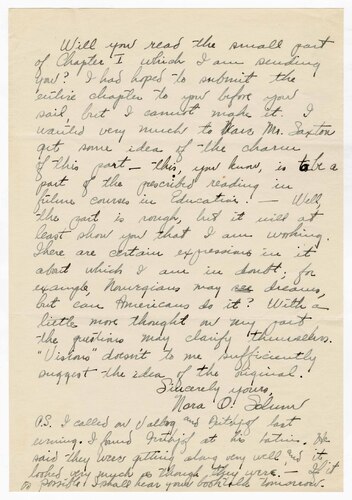 Will you read the small part
of Chapter I which I am sending
you? I had hoped to submit the
entire chapter to you before you
sail, but I cannot make it. I
wanted very much to have Mr. Saxton
get some idea of the charm
of this part — this, you know, is to be a
part of the prescribed reading in
future courses in Education! — Well,
the part is rough, but it will at
least show you that I am working.
There are certain expressions in it
about which I am in doubt; for
example, Norwegians may see dreams,
but can Americans do it? With a
little more thought on my part
the questions may clarify themselves.
"Visions" doesn't to me sufficiently
suggest the idea of the original.
Sincerely yours,
Nora O. Solum
P.S. I called on and last
evening. I found at his. He
said they were getting along very well and it
looked very much as though they were! — If it
is possible I shall hear your tomorrow.